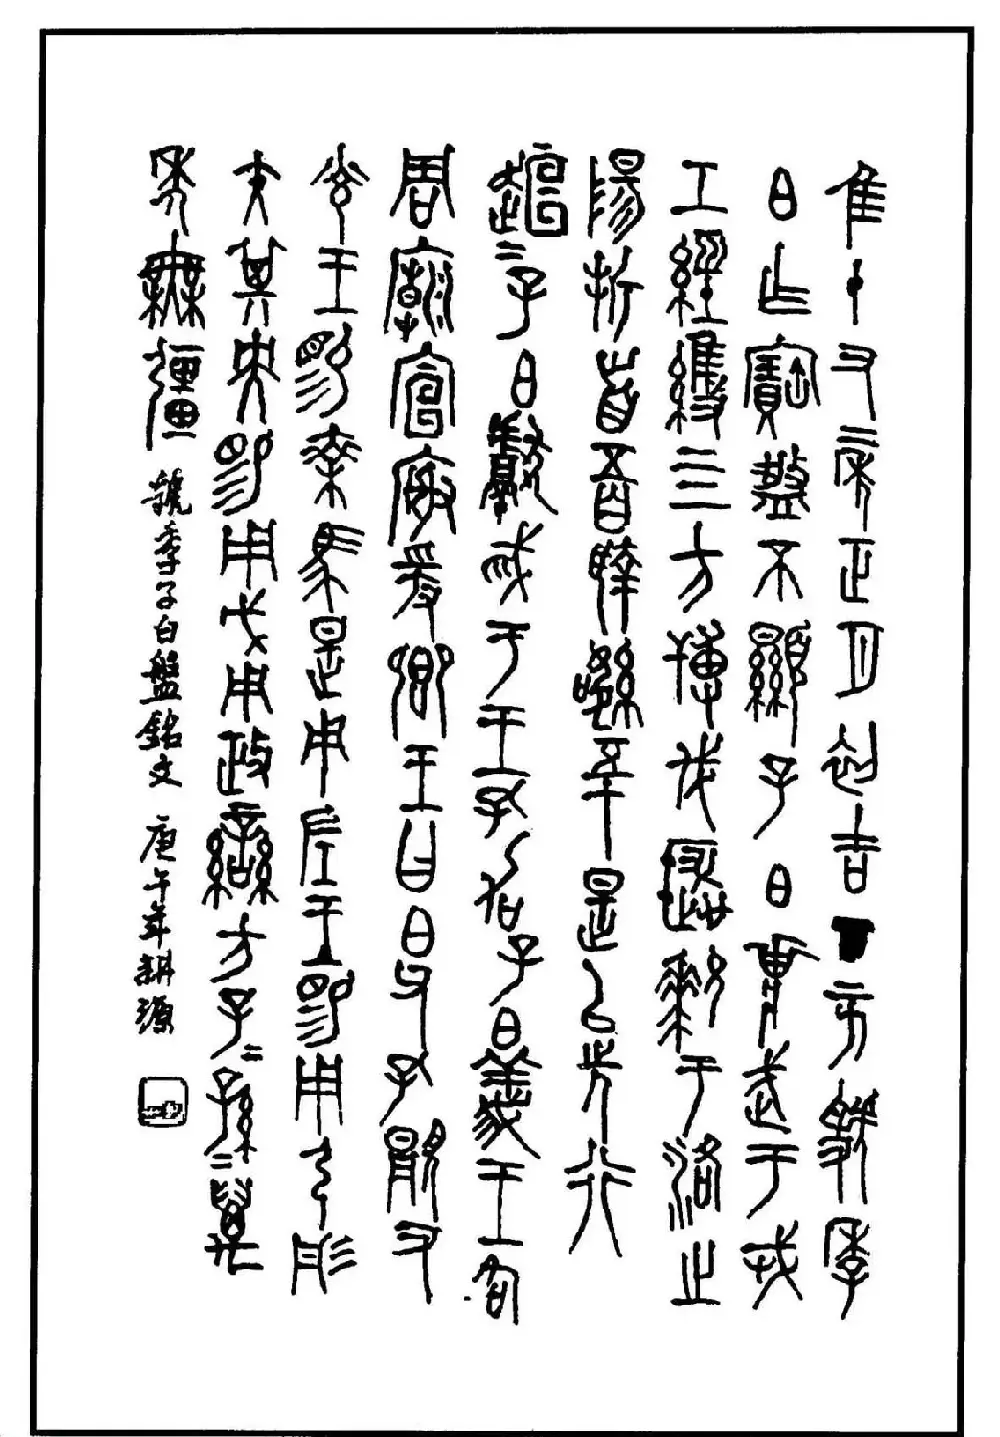 隹十又二年正月初吉丁亥虢季子
白乍寶盤不顯子白壯武于戎
工經維四方搏伐玁狁于洛之
陽折首五百執訊五十是以先行
趄=子白獻馘于王王孔加子白義王各
周廟宣榭爰鄉王曰白父孔顯又
光王賜乘馬是用左王賜用弓彤
矢其央賜用戉用政蠻方子=孫=萬
年無疆 虢季子白盤銘文 庚午年耕源